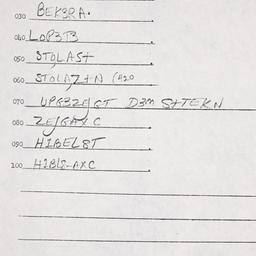 030 BEK3RA.
040 LOP3T3
050 STOLAST
060 STOLAZ+N (H20
070 UPG3ZE/ST D3M S+TEKN
080 ZE/GAXC
090 HIBELST
100 HIBLS-AXC